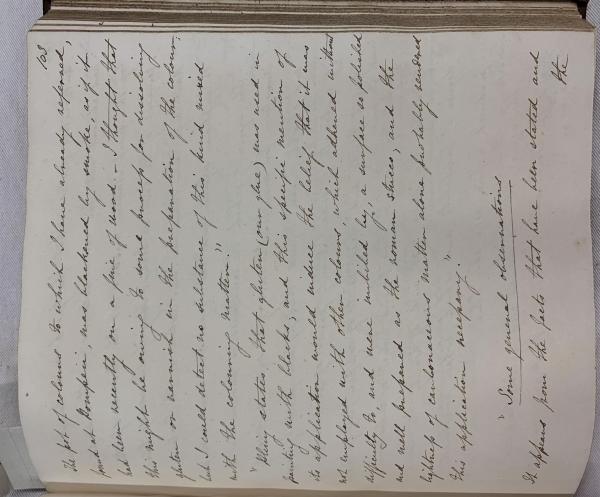 103
The pot of colours to which I have already referred,
found at Pompeii, was blackened by smoke, as if it
had been recently on a fire of wood. I thought that
this might be owing to some process for dissolving
gluten or varnish in the preparation of the colour;
but I could detect no substance of this kind mixed
with the colouring matter."
"Pliny states, that gluten (our glue) was used in
painting with blacks, and this specific mention of
its application would induce the belief that it was
not employed with other colours which adhered without
difficulty to, and were imbibed by, a surface so polished
and well prepared as the roman stucco, and the
lightness of carbonaceous matter alone probably rendered
this application necessary."
"Some general observations
It appears from the facts that have been stated and
the